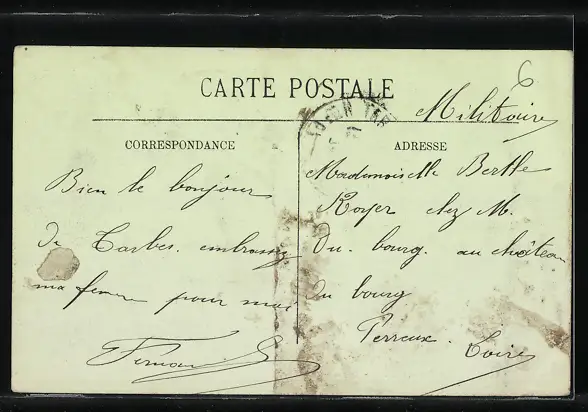 6
CARTE POSTALE
Militaire
CORRESPONDANCE
Bien le bonjour
de Tarbes. embrassez
ma femme pour moi
Fernand
ADRESSE
Mademoiselle Berthe
Royer chez M.
Du. bourg. au château
Du bourg
Perreux. Loire